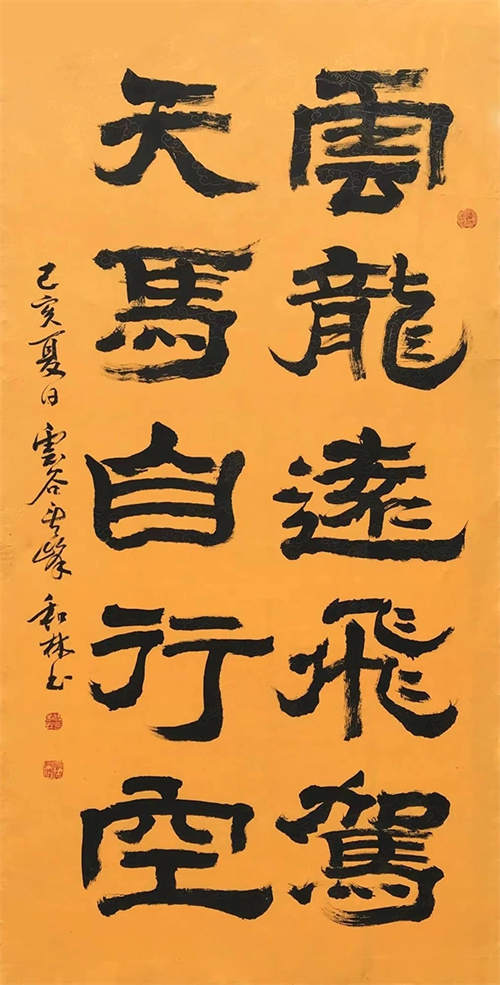 雲龍遠飛駕
天馬自行空
己亥夏日雲谷
峰和林书